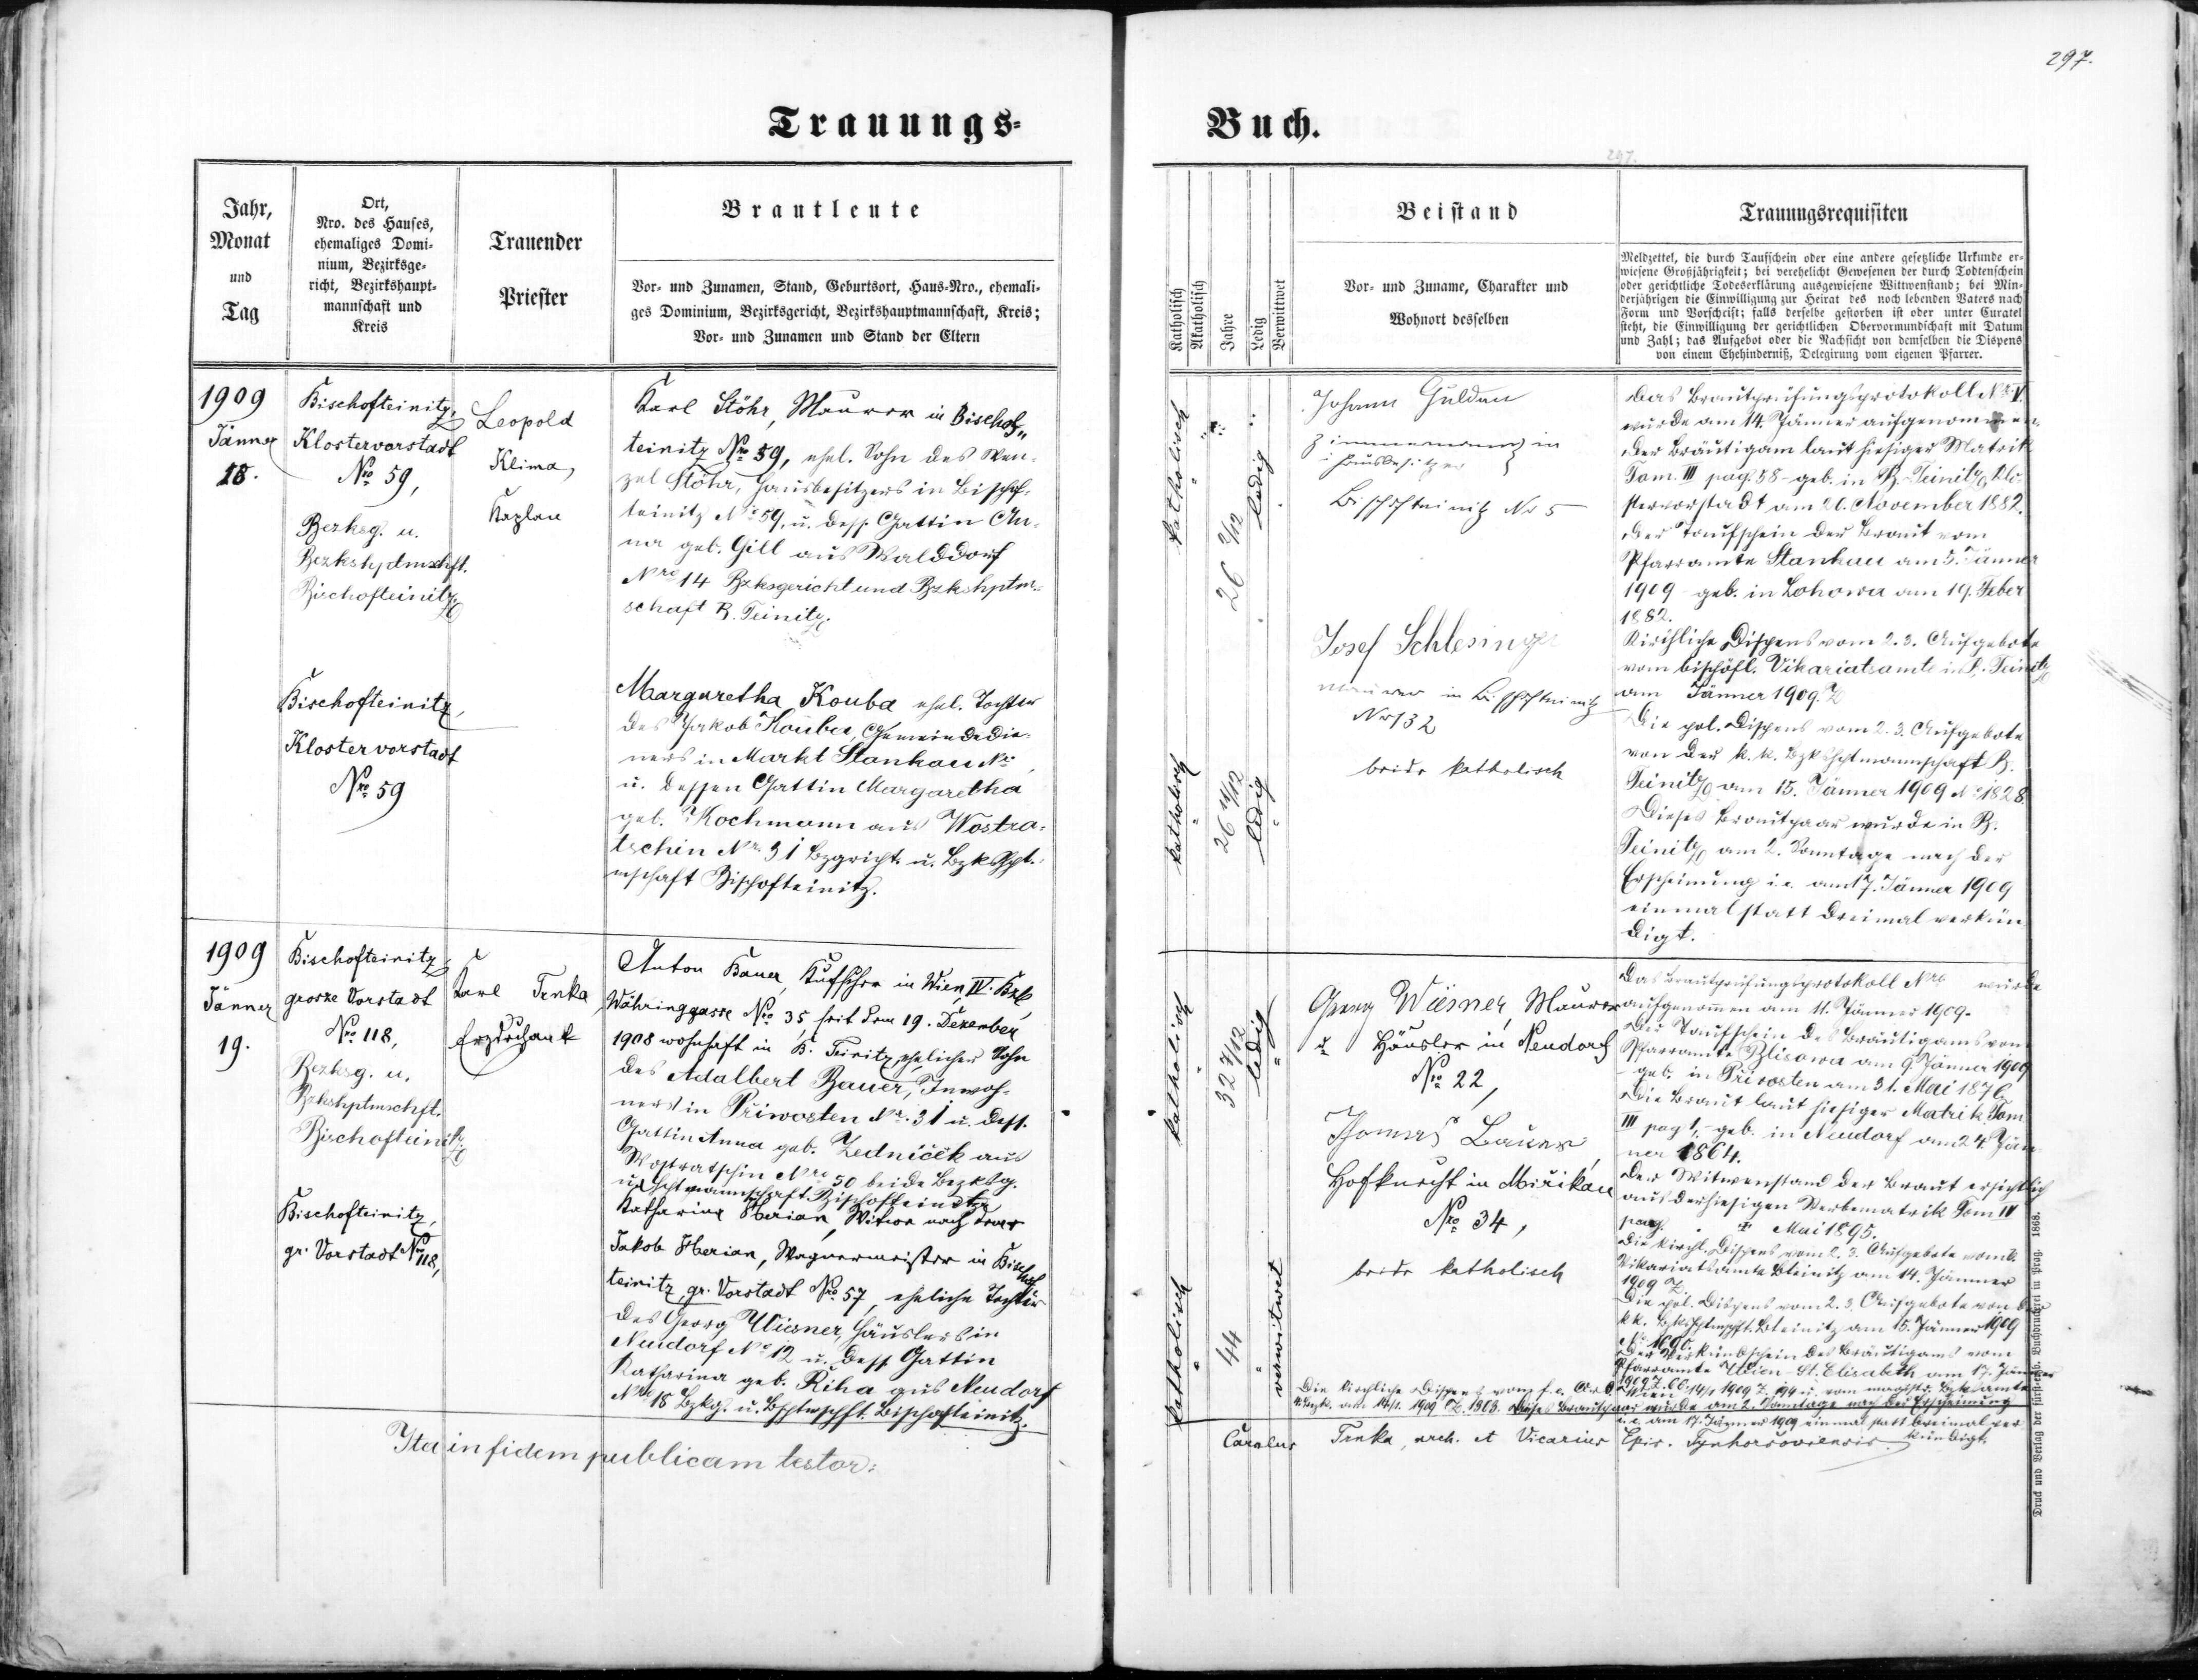 297.
Trauungs=
Buch.
297.
Jahr,
Monat
und
Tag
Ort,
Nro. des Hauses,
ehemaliges Domi-
nium, Bezirksge-
richt, Bezirkshaupt-
mannschaft und
Kreis
Trauender
Priester
Brautleute
Vor- und Zunamen, Stand, Geburtsort, Haus-Nro., ehemali-
ges Dominium, Bezirksgericht, Bezirkshauptmannschaft, Kreis;
Vor- und Zunamen und Stand der Eltern
Katholisch
Akatholisch
Jahre
Ledig
Verwittwet
Beistand
Vor- und Zuname, Charakter und
Wohnort desselben
Trauungsrequisiten
Meldzettel, die durch Taufschein oder eine andere gesetzliche Urkunde er-
wiesene Großjährigkeit; bei verehelicht Gewesenen der durch Todtenschein
oder gerichtliche Todeserklärung ausgewiesene Wittwenstand; bei Min-
derjährigen die Einwilligung zur Heirat des noch lebenden Vaters nach
Form und Vorschrift; falls derselbe gestorben ist oder unter Curatel
steht, die Einwilligung der gerichtlichen Obervormundschaft mit Datum
und Zahl; das Aufgebot oder die Nachsicht von demselben die Dispens
von einem Ehehinderniß, Delegirung vom eigenen Pfarrer.
1909
Jänner
18.
Bischofteinitz,
Klostervorstadt
Nro 59,
Bezksg. u.
Bezkshptmschft.
Bischofteinitz
Leopold
Klima,
Kaplan
Karl Stöhr, Maurer in Bischof„
teinitz Nro 59, ehel. Sohn des Wen-
zel Stöhr, Hausbesitzers in Bischof-
teinitz No 59, u. dess. Gattin An-
na geb. Gill aus Walddorf
Nro 14 Bzksgericht und Bzkshptm-
schaft B. Teinitz.
Bischofteinitz,
Klostervorstadt
Nro 59
Margaretha Kouba ehel. Tochter
des Jakob Kouba, Gemeindedie-
ners in Markt Stankau No
u. dessen Gattin Margaretha
geb. Kochmann aus Wostra-
tschin Nr. 31 Bzgricht. u. Bzkshpt-
mschaft Bischofteinitz.
katholisch
26 2/12
ledig
katholisch
26 11/12
ledig
Johann Guldan
Zimmermann in
i Hausbesitzer
Bischofteinitz No 5
Josef Schlesinger
Maurer in Bischofteinitz
No 132
beide katholisch
Das Brautprüfungsprotokoll No V.
wurde am 14. Jänner aufgenommen.
Der Bräutigam laut hiesiger Matrik
Tom. III pag. 58 - geb. in B. Teinitz, Klo-
stervorstadt am 20. November 1882.
Der Taufschein der Braut vom
Pfarramte Stankau am 5. Jänner
1909 - geb. in Lohowa am 19. Feber
1882.
Kirchliche Dispens vom 2. 3. Aufgebote
vom bischöfl. Vikariatsamte in B. Teinitz
am Jänner 1909. Z
Die pol. Dispens vom 2. 3. Aufgebote
von der k. k. Bzkshptmannschaft B.
Teinitz am 15. Jänner 1909 No 1828.
Dieses Brautpaar wurde in B.
Teinitz am 2. Sonntage nach der
Erscheinung i. e. am 17. Jänner 1909
einmal statt dreimal verkün
digt.
1909
Jänner
19.
Bischofteinitz
grosze Vorstadt
Nro 118,
Bezksg. u.
Bzkshptmschft.
Bischofteinitz
Karl Trnka
Erzdechant
Anton Bauer, Kutscher in Wien, IV. Bzk,
Währinggasse Nro 35, seit dem 19. Dezember
1908 wohnhaft in B. Teinitz, ehelicher Sohn
des Adalbert Bauer, Inwoh-
ners in Přiwosten Nr. 31 u. dess.
Gattin Anna geb. Zedníček aus
Wostratschin Nro 50 beide Bezksg.
u. Hptmannschaft Bischofteinitz
Bischofteinitz,
gr. Vorstadt Nro 118,
Katharina Iberian, Witwe nach dem
Jakob Iberian, Wagnermeister in Bischof
teinitz, gr. Vorstadt Nro 57, eheliche Tochter
des Georg Wiesner, Häuslers in
Neudorf No 12 u. dess. Gattin
Katharina geb. Řiha aus Neudorf
Nro 18 Bzkg. u. Bhptmschft. Bischofteinitz.
katholisch
32 7/12
ledig
katholisch
44
verwitwet
Georg Wiesner, Maurer
u. Häusler in Neudorf
Nro 22,
Thomas Bauer,
Hofknecht in Mirikau
Nro 34,
beide katholisch
Das Brautprüfungsprotokoll Nro wurde
aufgenommen am 11. Jänner 1909.
Der Taufschein des Bräutigams vom
Pfarramte Blisowa am 9. Jänner 1909
- geb. in Přivosten am 31. Mai 1876.
Die Braut laut hiesiger Matrik Tom
III pag 1, - geb. in Neudorf am 24. Jän
ner 1864.
Der Witwenstand der Braut ersichtlich
aus der hiesigen Sterbematrik Tom IV
pag. Mai 1895.
Die kirchl. Dispens vom 2. 3. Aufgebote vom b.
Vikariatsamte Bteinitz am 14. Jänner
1909 Z.
Die pol. Dispens vom 2. 3. Aufgebote von der
k k. Bzkshptmschft. Bteinitz am 15. Jänner 1909
Der Verkündschein des Bräutigams vom
Pfarramte Wien St. Elisabeth am 17. Jänner
Die kirchliche Dispens vom f. e. Or. Wien 14/1 1909 Z. u. vom magistr. Bzksamte
am 14/1. 1909 Z. 1808. Dieses Brautpaar wurde am 2. Sonntage nach der Erscheinung
i. e. am 17. Jänner 1909 einmal statt dreimal ver
kündigt.
Ita in fidem publicam testor:
Carolus Trnka, arch. et Vicarius Epis. Tynhorsoviensis.
Druck und Verlag der fürsterzb. Buchdruckerei in Prag. 1868.